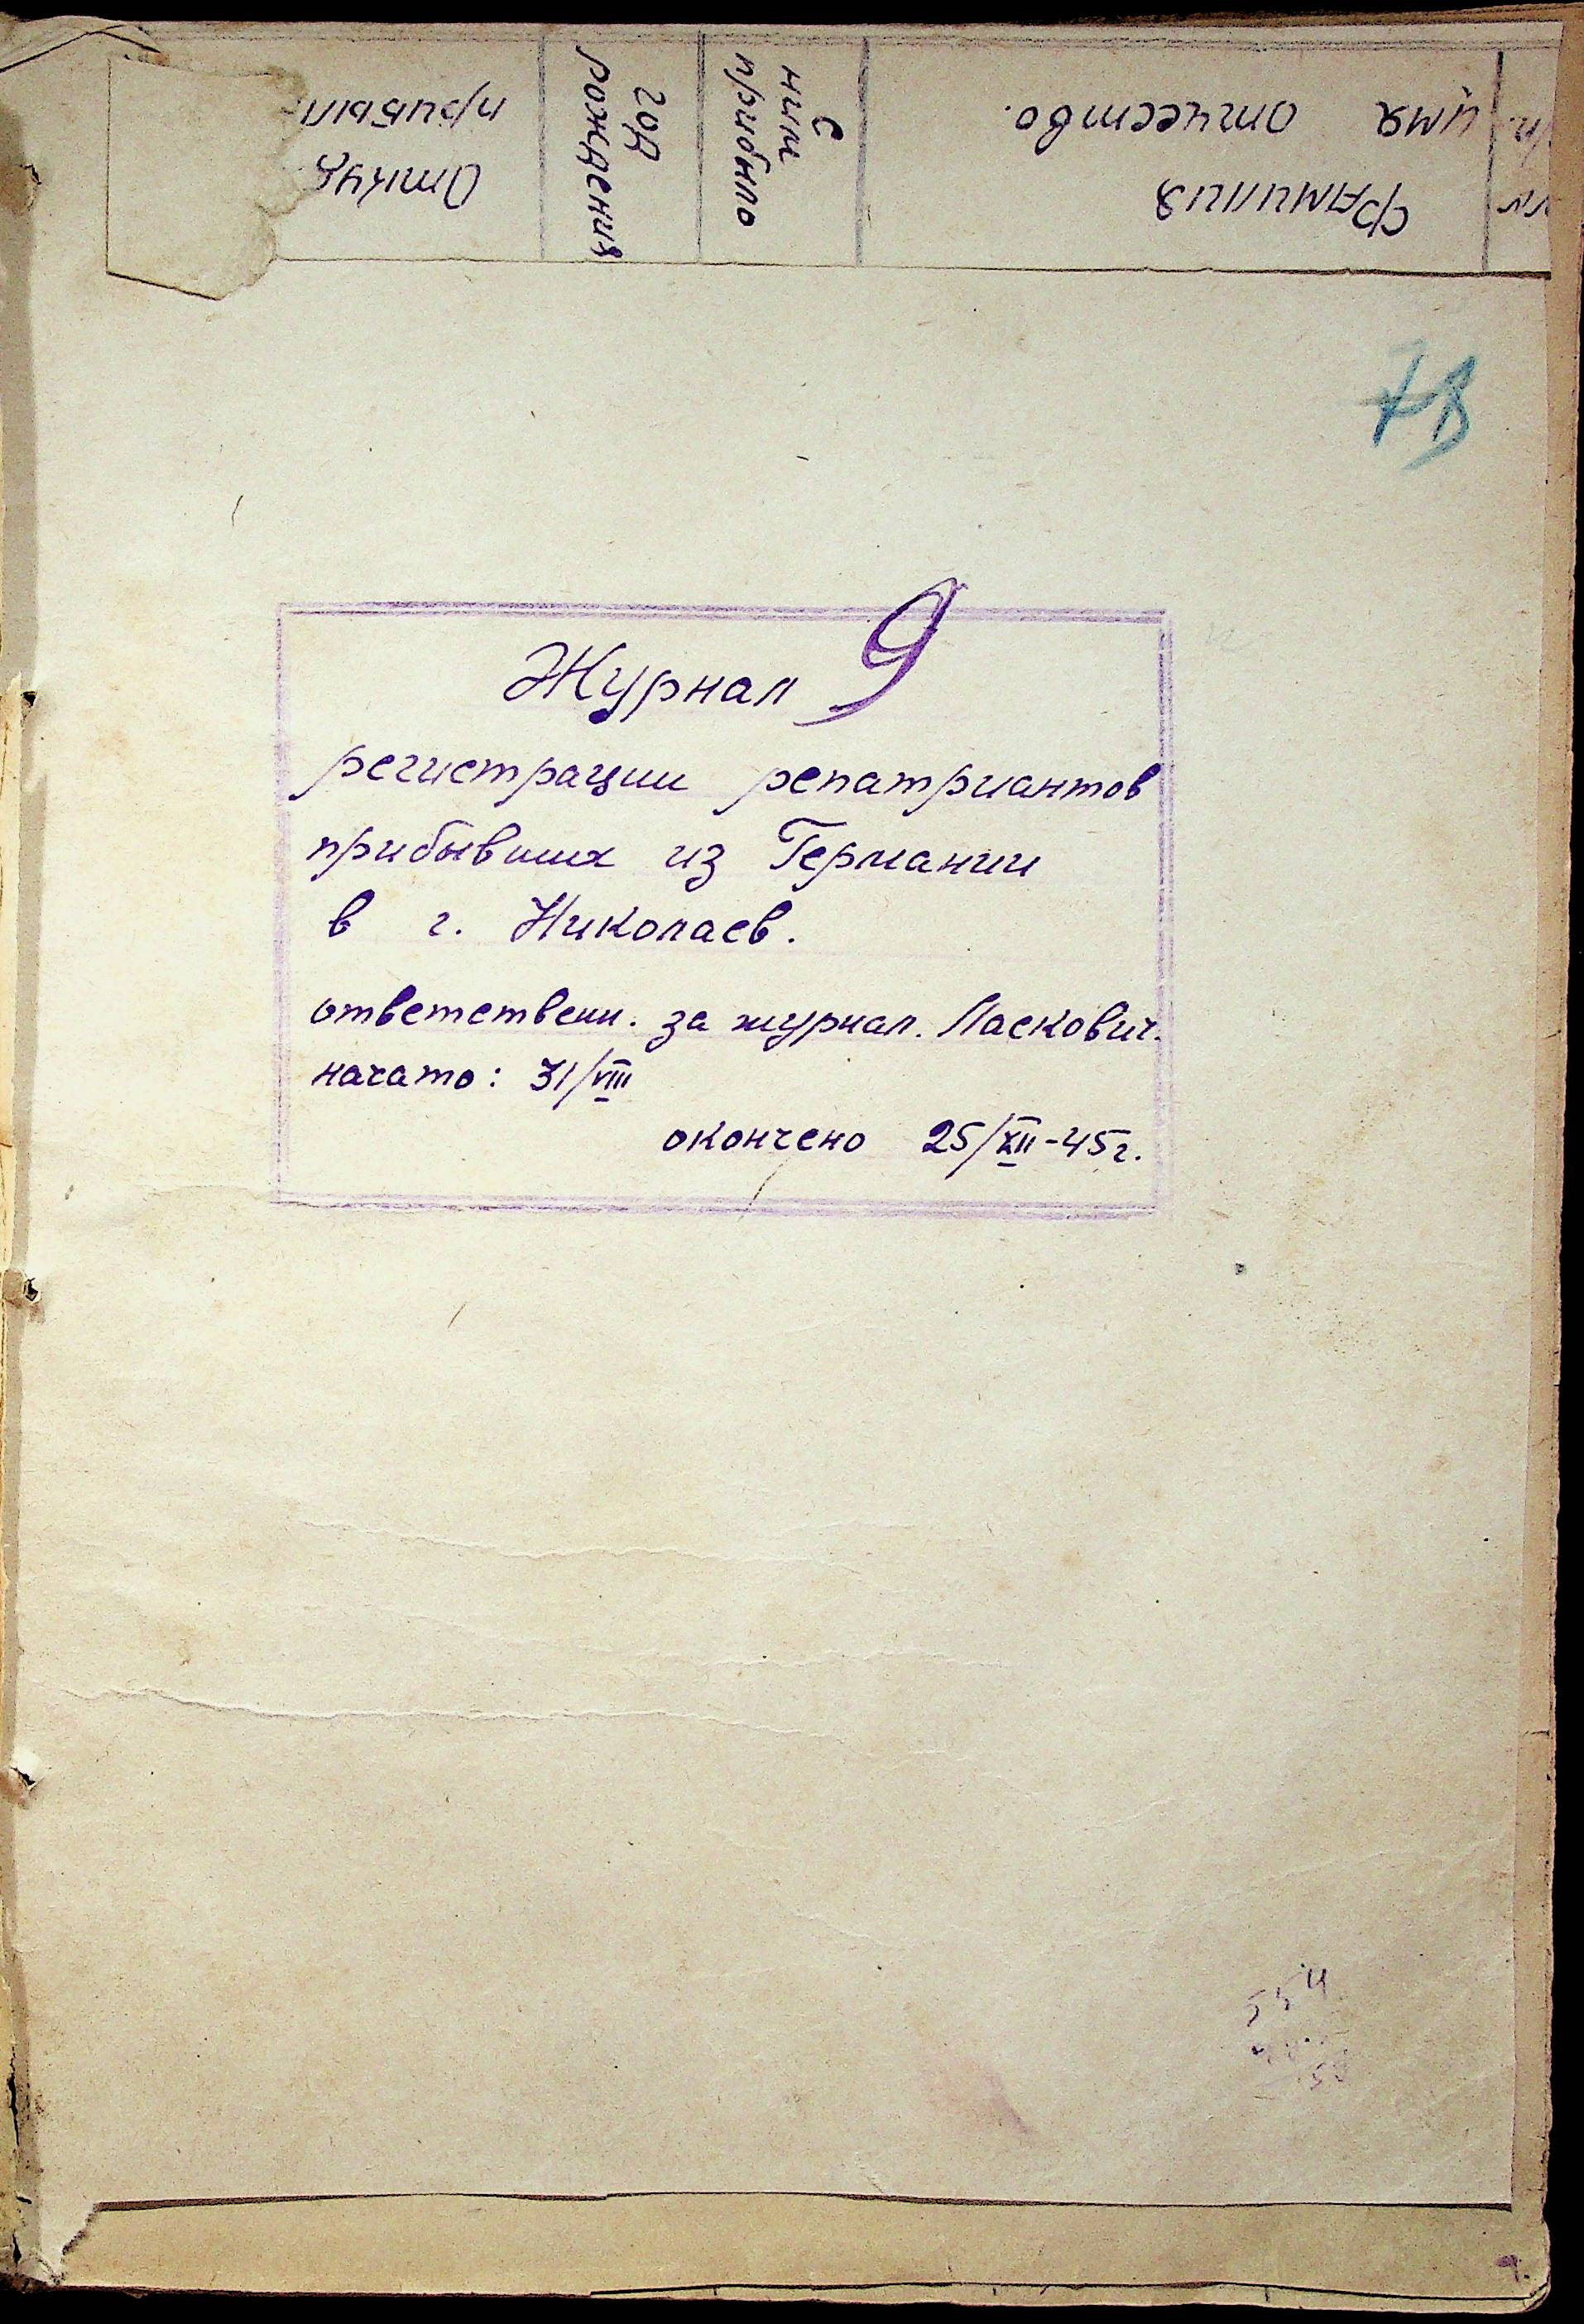 № п/п
Фамилия
имя отчество.
с ним прибыло
год рождения
Откуда
прибыл
78
Журнал 9
регистрации репатриантов
прибывших из Германии
в г. Николаев.
ответственн. за журнал. Ласкович.
начато: 31/VIII
окончено 25/XII-45г.
554